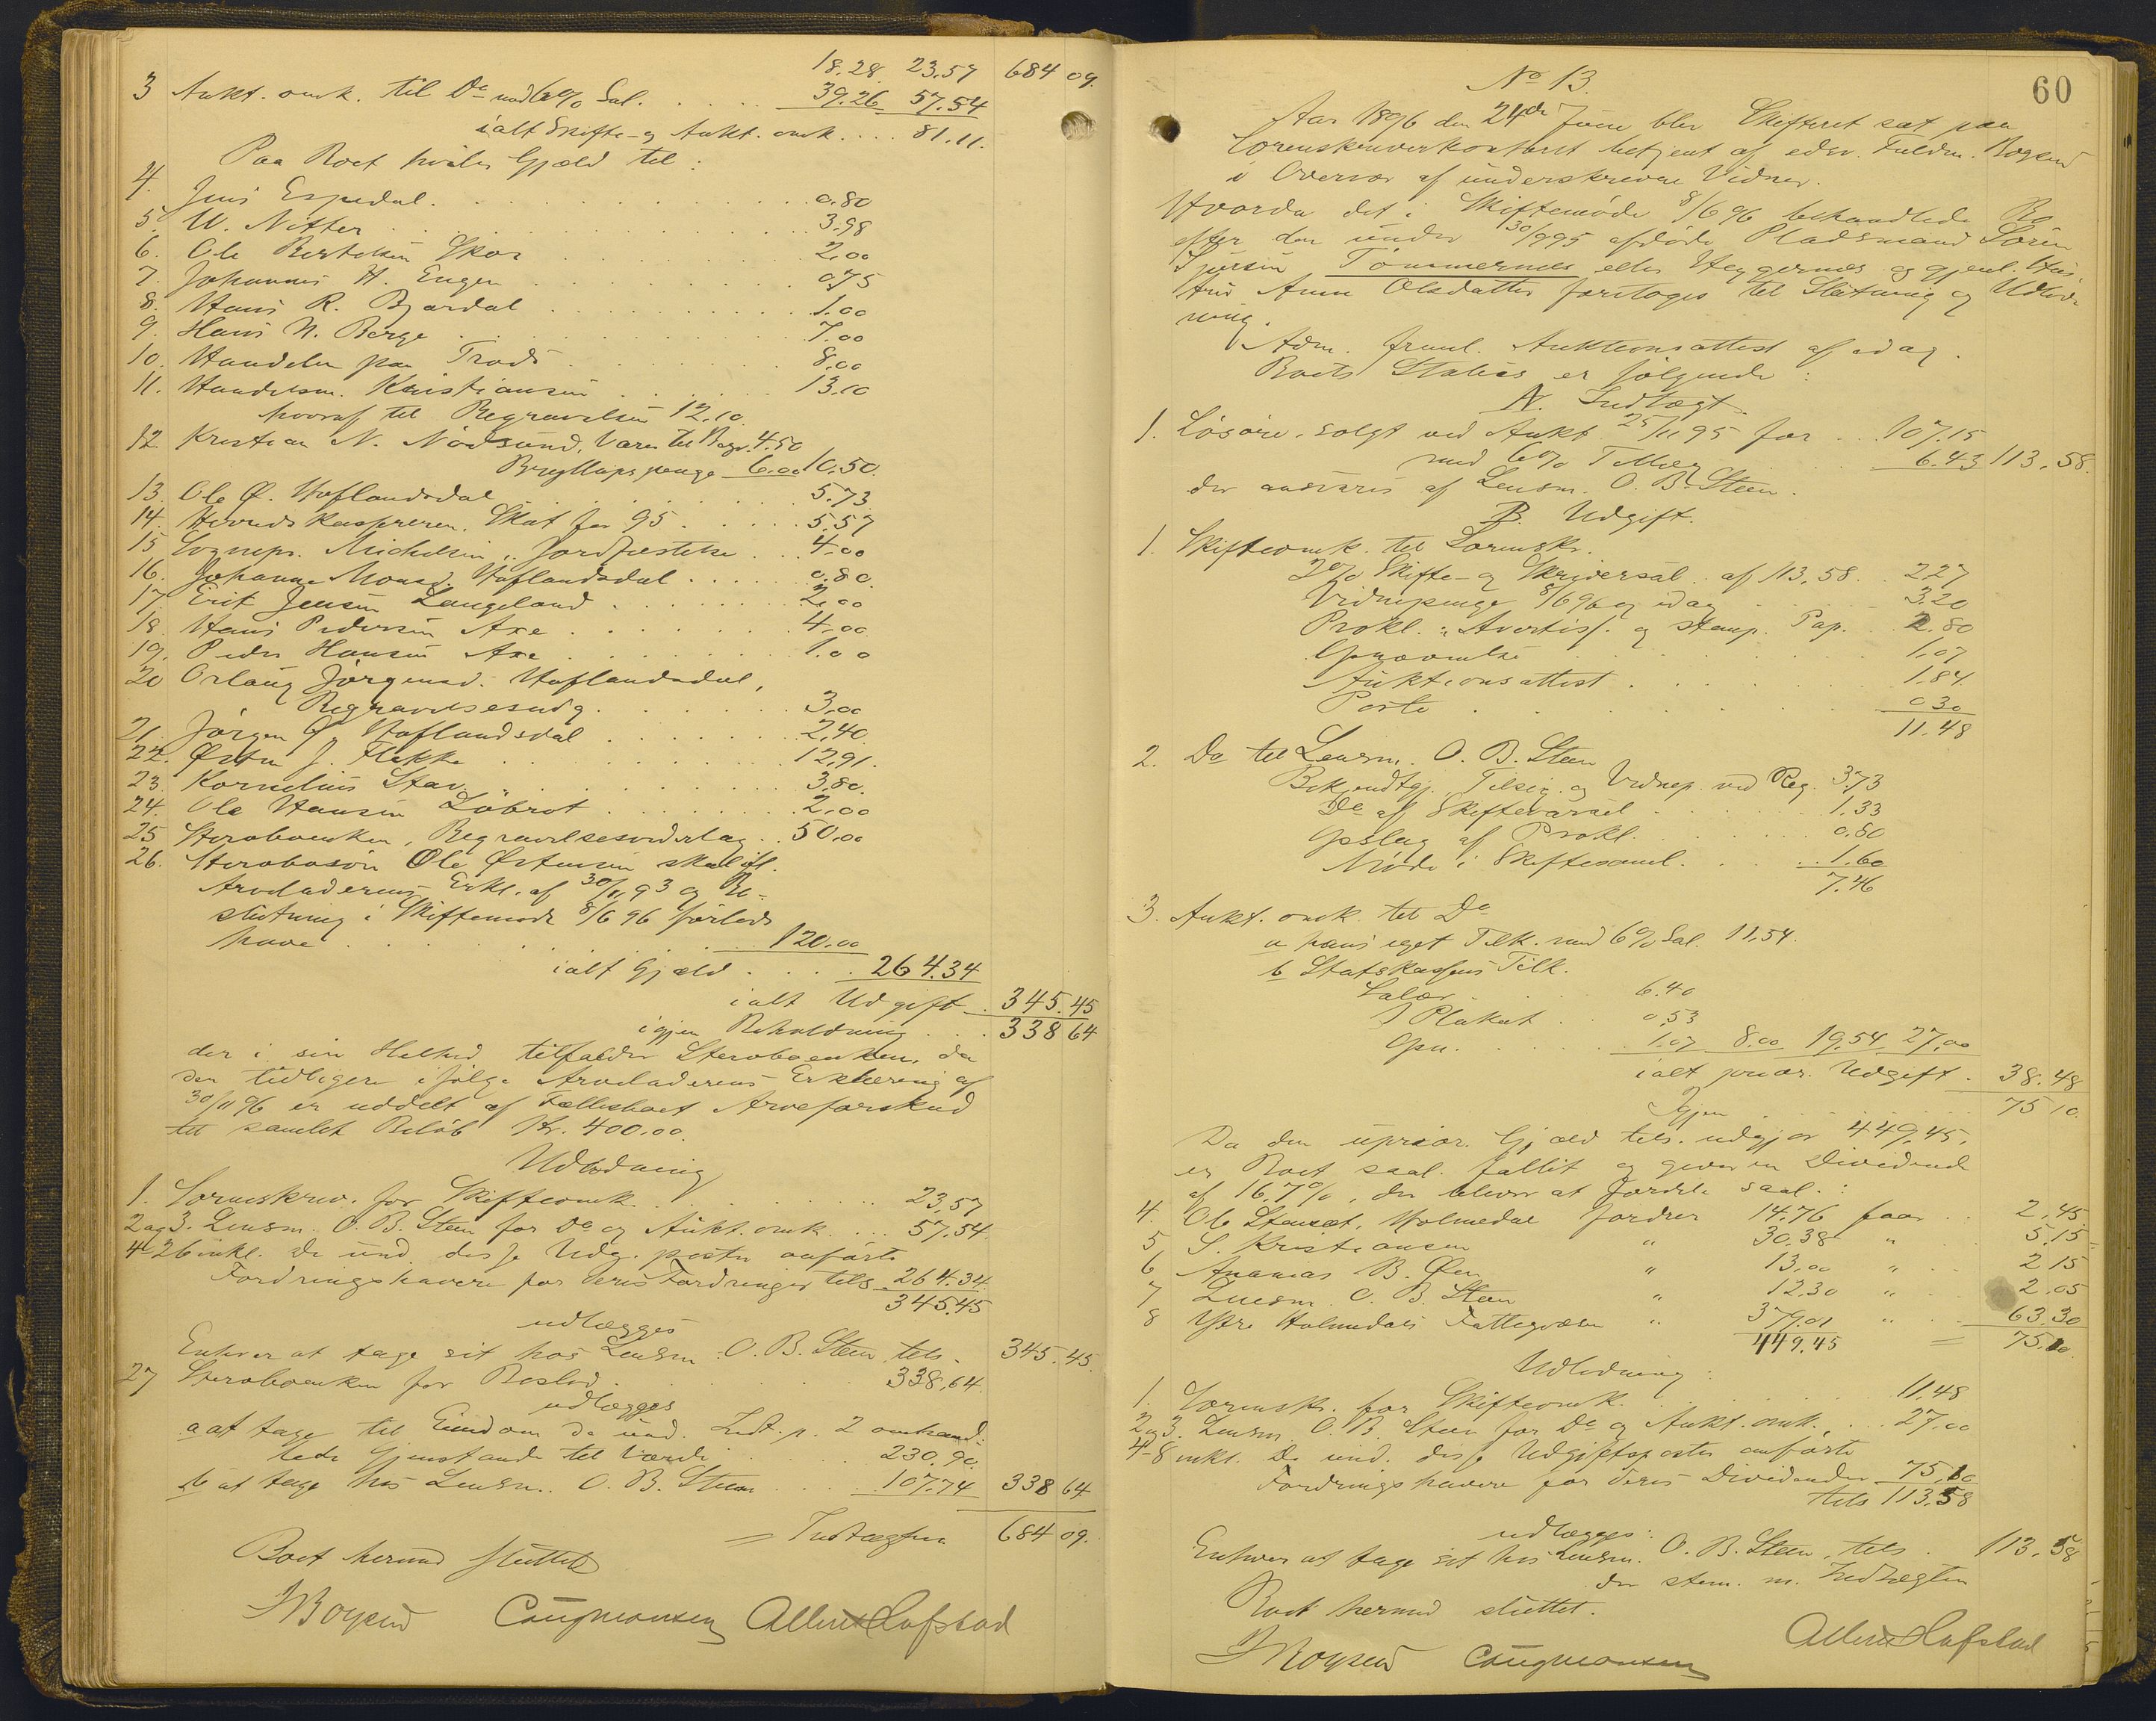 18.28 23.57 684 09.
3 Aukt. omk. til Do med 6% Sal. . . . . 39.26 57.54
ialt Skifte- og Aukt. omk. . . . 81.11.
Paa Boet hviler Gjæld til:
4. Jens Espedal. . . . 0.80
5. W. Nitter . . . 3.98
6. Ole Bertelsen Skor . . . 2.00
7. Johannes H. Engen . . . 0.75
8. Hans R. Bjordal . . . 1.00
9. Hans N. Berge . . . 7.00
10. Handelen paa Trods . . . 8.00
11. Handelsm. Kristiansen . . . 13.10
hvoraf til Begravelsen 12.10
12. Kristian N. Nødsund, Varer til Begr. 4.50
Bryllupspenge 6.00 10.50.
13. Ole Ø. Hoflandsdal . . . 5.73
14. Herredskassereren, Skat for 95 . . . 5.57
15. Sognepr. Michelsen, Jordfæstelse . . . 4.00
16. Johanne Monsd. Hoflandsdal . . . 0.80.
17. Erik Jensen Langeland . . . 2.00
18. Hans Pedersen Axe . . . 4.00
19. Peder Hansen Axe . . . 1.00
20 Orlaug Jørgensd. Hoflandsdal,
Begravelsesudg. . . . 3.00
21. Jørgen Ø. Hoflandsdal . . . 2.40
22. Østen J. Flekke . . . 12.91.
23. Kornelius Stav . . . 3.80.
24. Ole Hansen Løbrot . . . 2.00
25 Stervboenken, Begravelsesvederlag . . 50.00
26. Stervbosøn Ole Østensen skal ifl.
Arveladerens Erkl. af 30/11 93 og Be-
slutning i Skiftemøde 8/6 96 forlods
have . . . 120.00
ialt Gjæld . . . . 264.34
ialt Udgift . 345.45
igjen Beholdning . . . 338 64
der i sin Helhed tilfalder Stervboenken, da
der tidligere ifølge Arveladerens Erklæring af
30/11 96 er uddelt af Fællesboet Arveforskud
til samlet Beløb Kr. 400.00.
Udlodning
1. Sorenskriv. for Skifteomk. . . . 23.57
2 og 3. Lensm. O. B. Steen for Do og Aukt. omk. . . . 57.54
4-26 inkl. De und. disse Udg. poster anførte
Fordringshavere for deres Fordringer tils. 264.34.
345.45
udlægges
Enhver at tage sit hos Lensm. O. B. Steen tils. 345.45.
27 Stervboenken for Boslod . . . 338.64.
udlægges
a at tage til Eiendom de und. Indt. p. 2 omhand-
lede Gjenstande til Værdi . . . 230.90.
b at tage hos Lensm. O. B. Steen . . . 107.74 338 64
= Indtægten 684 09.
Boet hermed sluttet
JBoysen Caugmonsen Albert Hafstad
60
No 13.
Aar 1896 den 24de Juni blev Skifteret sat paa
Sorenskriverkontoret betjent af edsv. Fuldm. Boysen
i Overvær af underskrevne Vidner.
Hvorda det i Skiftemøde 8/6 96 behandlede Bo
efter den under 30/9 95 afdøde Pladsmand Søren
Tømmernes eller Heggernes og gjenl. Hus-
tru Anna Olsdatter foretoges til Slutning og Udlod-
ning.
Adm. freml. Auktionsattest af idag.
Boets Status er følgende:
A. Indtægt.
1. Løsøre, solgt ved Aukt. 25/11 95 for . . 107.15
med 6% Tillæg . . . 6.43 113.58.
der ansvares af Lensm. O. B. Steen.
B. Udgift.
1. Skifteomk. til Sorenskr.
2% Skifte- og Skriversal. af 113.58 . . 2 27
Vidnepenge 8/6 96 og idag . . . 3 20
Prokl. Avertiss. og stemp. Pap. . . 2.80
Opnævnelse . . . 1.07
Auktionsattest . . . 1.84.
Porto . . . 0 30
11.48
2. Do til Lensm. O. B. Steen
Bekjendtgj. Tilsig. og Vidnep. ved Reg. 3.73
Do af Skiftevarsel . . . 1.33
Opslag af Prokl. . . . 0.80
Møde i Skiftesaml. . . . 1.60
7.46
3. Aukt. omk. til Do
a hans eget Tilk. med 6% Sal. 11.54.
b Statskassens Tilk.
Salær . . . 6.40
1 Plakat . . 0.53
Opn. . . . 1.07 8.00 19.54 27.00
ialt prior. Udgift . 38.48
Igjen . . . 75 10.
Da den uprior. Gjæld tils. udgjør 449.45,
er Boet saal. fallit og giver en Dividende
af 16.7%, der bliver at fordele saal.:
4. Ole Stensæt, Holmedal fordrer 14.76 faar . . 2.45.
5 S. Kristiansen " 30.38 " . . 5.15
6 Ananias B. Øen " 13.00 " . . 2 15
7 Lensm. O. B. Steen " 12.30 " . . 2.05
8 Ytre Holmedals Fattigvæsen " 379.01 " . . 63.30
449.45 = 75.10.
Udlodning:
1. Sorenskr. for Skifteomk. . . . 11.48
2 og 3. Lensm. O. B. Steen for Do og Aukt. omk. . . . 27.00
4-8 inkl. De und. disse Udgiftsposter anførte
Fordringshavere for deres Dividender 75.10
tils 113.58
udlægges:
Enhver at tage sit hos Lensm. O. B. Steen, tils . 113.58
der stem. m. Indtægten
Boet hermed sluttet.
JBoysen Caugmonsen Albert Hafstad